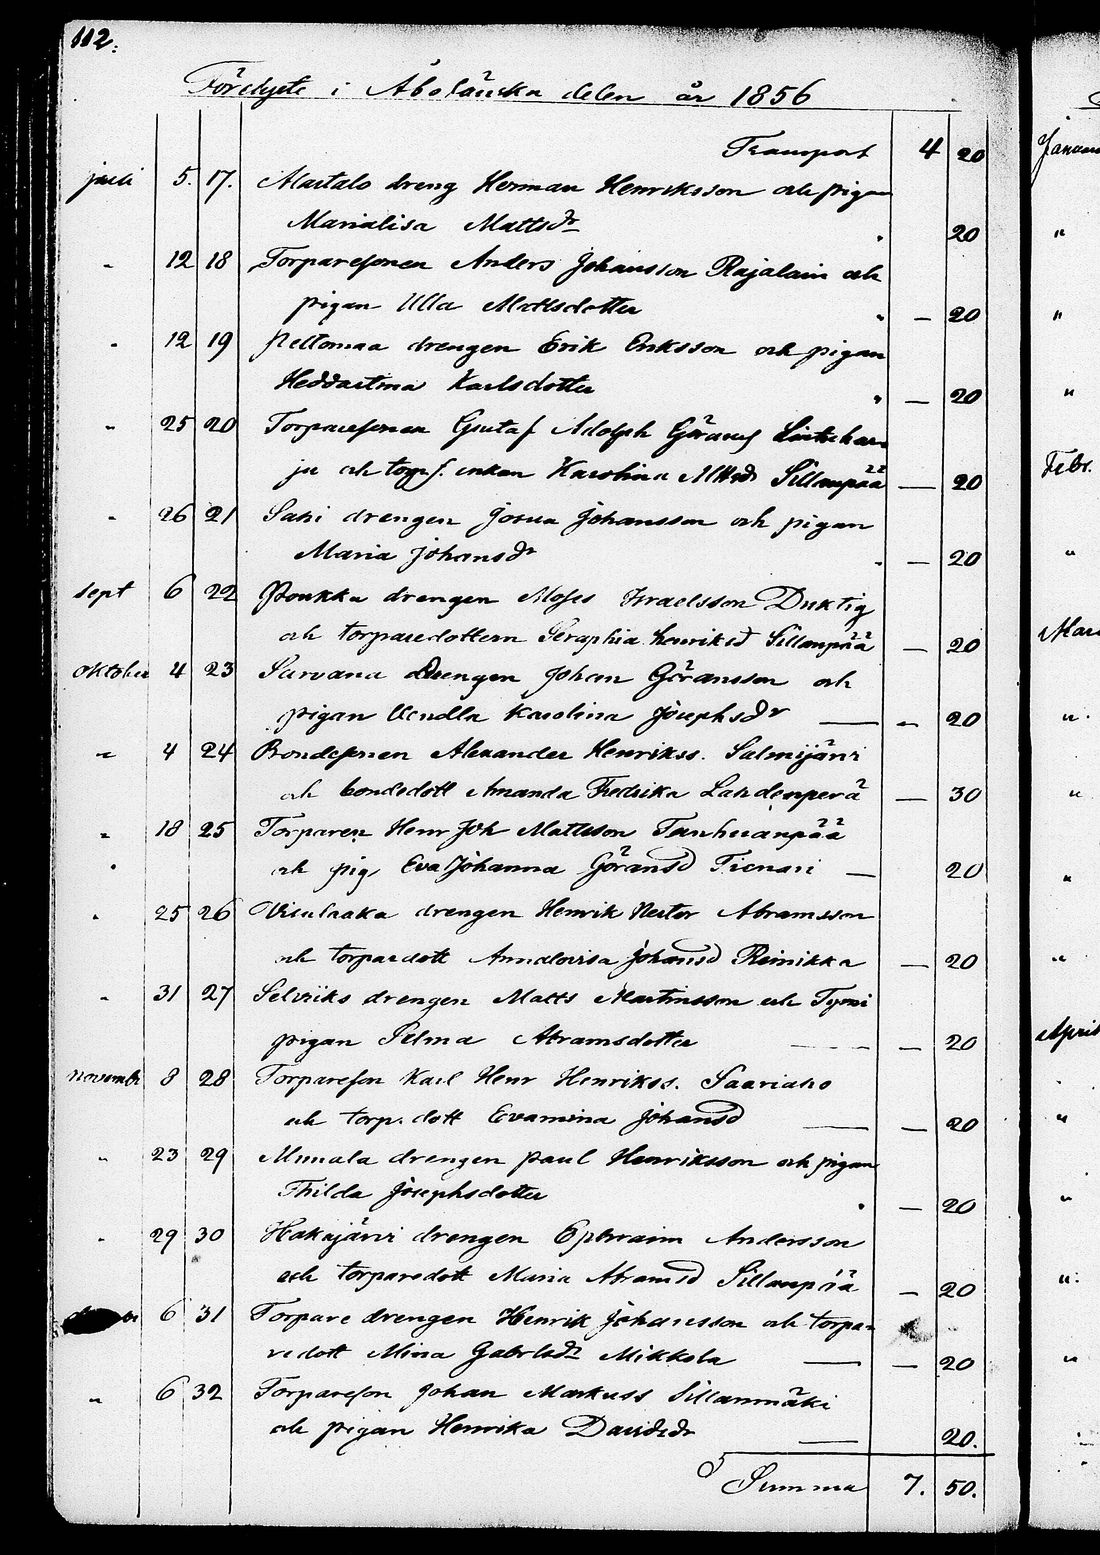 112.
i Åboländska delen år 1856
Transport 4 20
juli 5. 17. Martalo dreng Herman Henriksson och pigan
Marialisa Mattsdr 20
" 12 18 Torparesonen Anders Johansson Rajalain och
pigan Ulla Mattsdotter " — 20
" 12 19 Peltomaa drengen Erik Eriksson och pigan
Karlsdotter " — 20
" 25 20 Torparesonen Gustaf Adolph Görans Lintuhar
ju och torp. enkan Karolina Mattsdr Sillanpää — 20
" 26 21 Sari drengen Josua Johansson och pigan
Maria Johansdr — 20
sept 6 22 Poukka drengen Moses Israelsson Duktig
och torparedottern Seraphia Henriksd Sillanpää — 20
oktober 4 23 Sarvana drengen Johan Göransson och
pigan Vendla Karolina Josephsdr — 20
" 4 24 Bondesonen Alexander Henrikss. Salmijärvi
och bondedott Amanda Fredrika Lahdenperä — 30
" 18 25 Torparen Henr Joh Mattsson Tanhuanpää
och pig Eva Johanna Göransd Tienari — 20
" 25 26 drengen Henrik Nestor Abramsson
och torparedott Annalovisa Johansd Reinikka — 20
" 31 27 Selviiks drengen Matts Martinsson och Tyrni
pigan Selma Abramsdotter — 20
novemb 8 28 Torpareson Karl Henr Henrikss. Saariaho
och torp. dott Evamina Johansd — 20
" 23 29 Munala drengen Paul Henriksson och pigan
Thilda Josephsdotter — 20
" 29 30 Hakajärvi drengen Ephraim Andersson
och torparedott Maria Abramsd Sillanpää — 20
6 31 Torpare drengen Henrik Johansson och torpa-
redott Mina Gabrlsdr Mikkola — 20
" 6 32 Torpareson Johan Markuss Sillanmäki
och pigan Henrika Davidsdr — 20.
Summa 7. 50.
Januari
Febr.
Mars
April